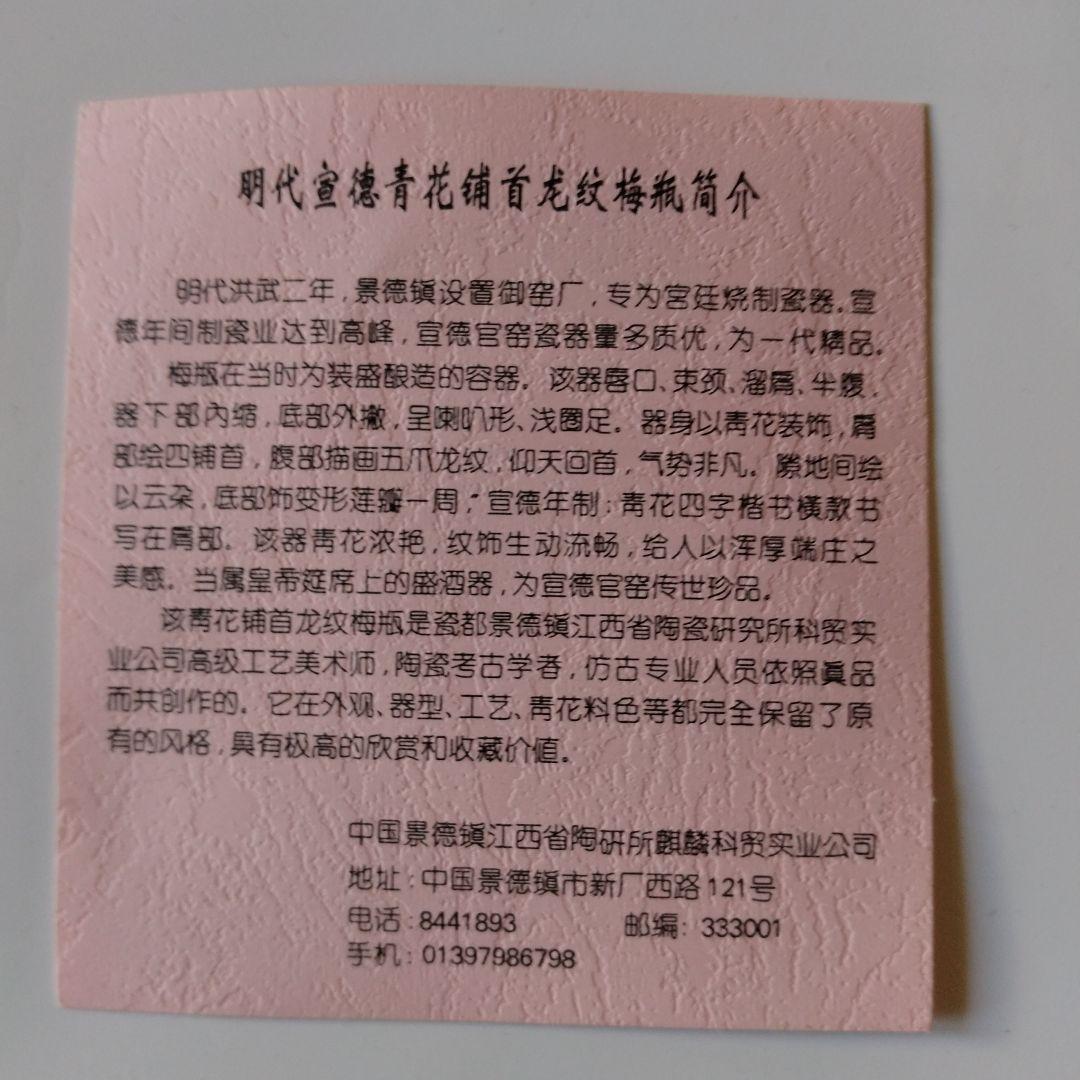 明代宣德青花铺首龙纹梅瓶简介
明代洪武二年,景德镇设置御窑厂,专为宫廷烧制瓷器。宣
德年间制瓷业达到高峰,宣德官窑瓷器量多质优,为一代精品。
梅瓶在当时为装盛酿造的容器。该器唇口、束颈、溜肩、半腹,
器下部内缩,底部外撇,呈喇叭形、浅圈足。器身以青花装饰,肩
部绘四铺首,腹部描画五爪龙纹,仰天回首,气势非凡。隙地间绘
以云朵,底部饰变形莲瓣一周,“宣德年制:青花四字楷书横款书
写在肩部。该器青花浓艳,纹饰生动流畅,给人以浑厚端庄之
美感。当属皇帝延席上的盛酒器,为宣德官窑传世珍品。
该青花铺首龙纹梅瓶是瓷都景德镇江西省陶瓷研究所科贸实
业公司高级工艺美术师,陶瓷考古学者,仿古专业人员依照真品
而共创作的。它在外观、器型、工艺、青花料色等都完全保留了原
有的风格,具有极高的欣赏和收藏价值。
中国景德镇江西省陶研所麒麟科贸实业公司
地址:中国景德镇市新厂西路121号
电话:8441893 邮编:333001
手机:01397986798